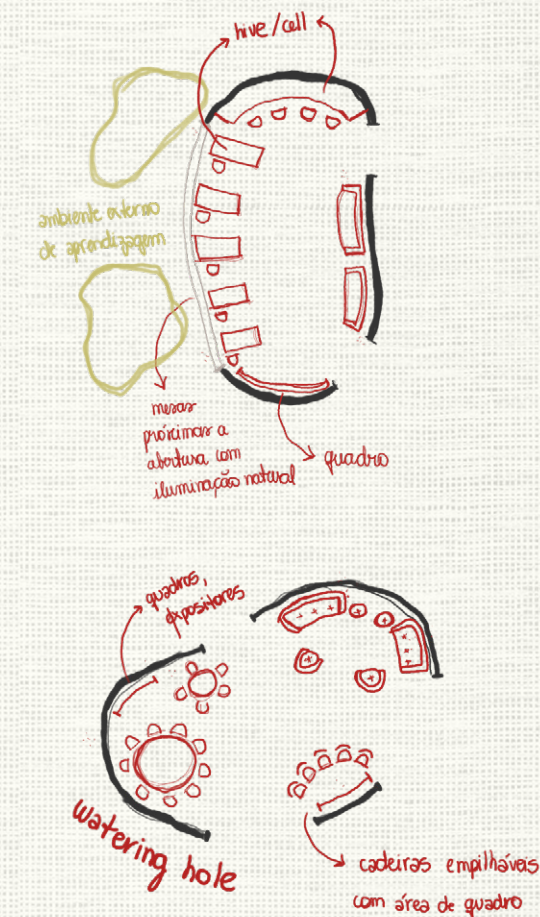 hive/cell
ambiente externo
de aprendizagem
mesas
próximas a
abertura com
iluminação natural
quadro
quadros,
expositores
watering hole
cadeiras empilháveis
com área de quadro